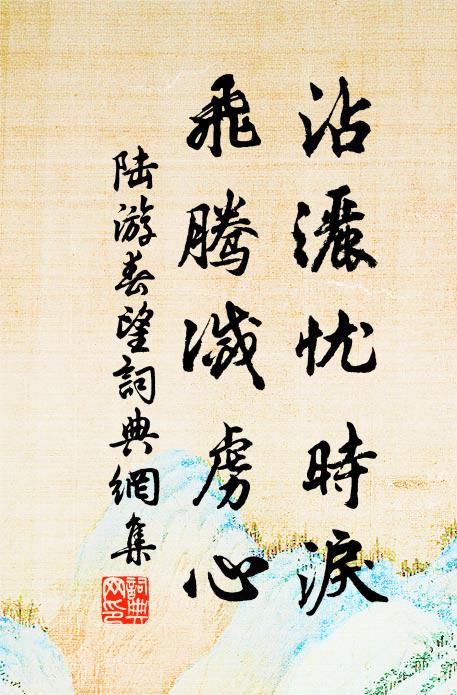 沾灑忧時淚
飛騰滅虜心
陸游春望詞典網集
詞典
网印